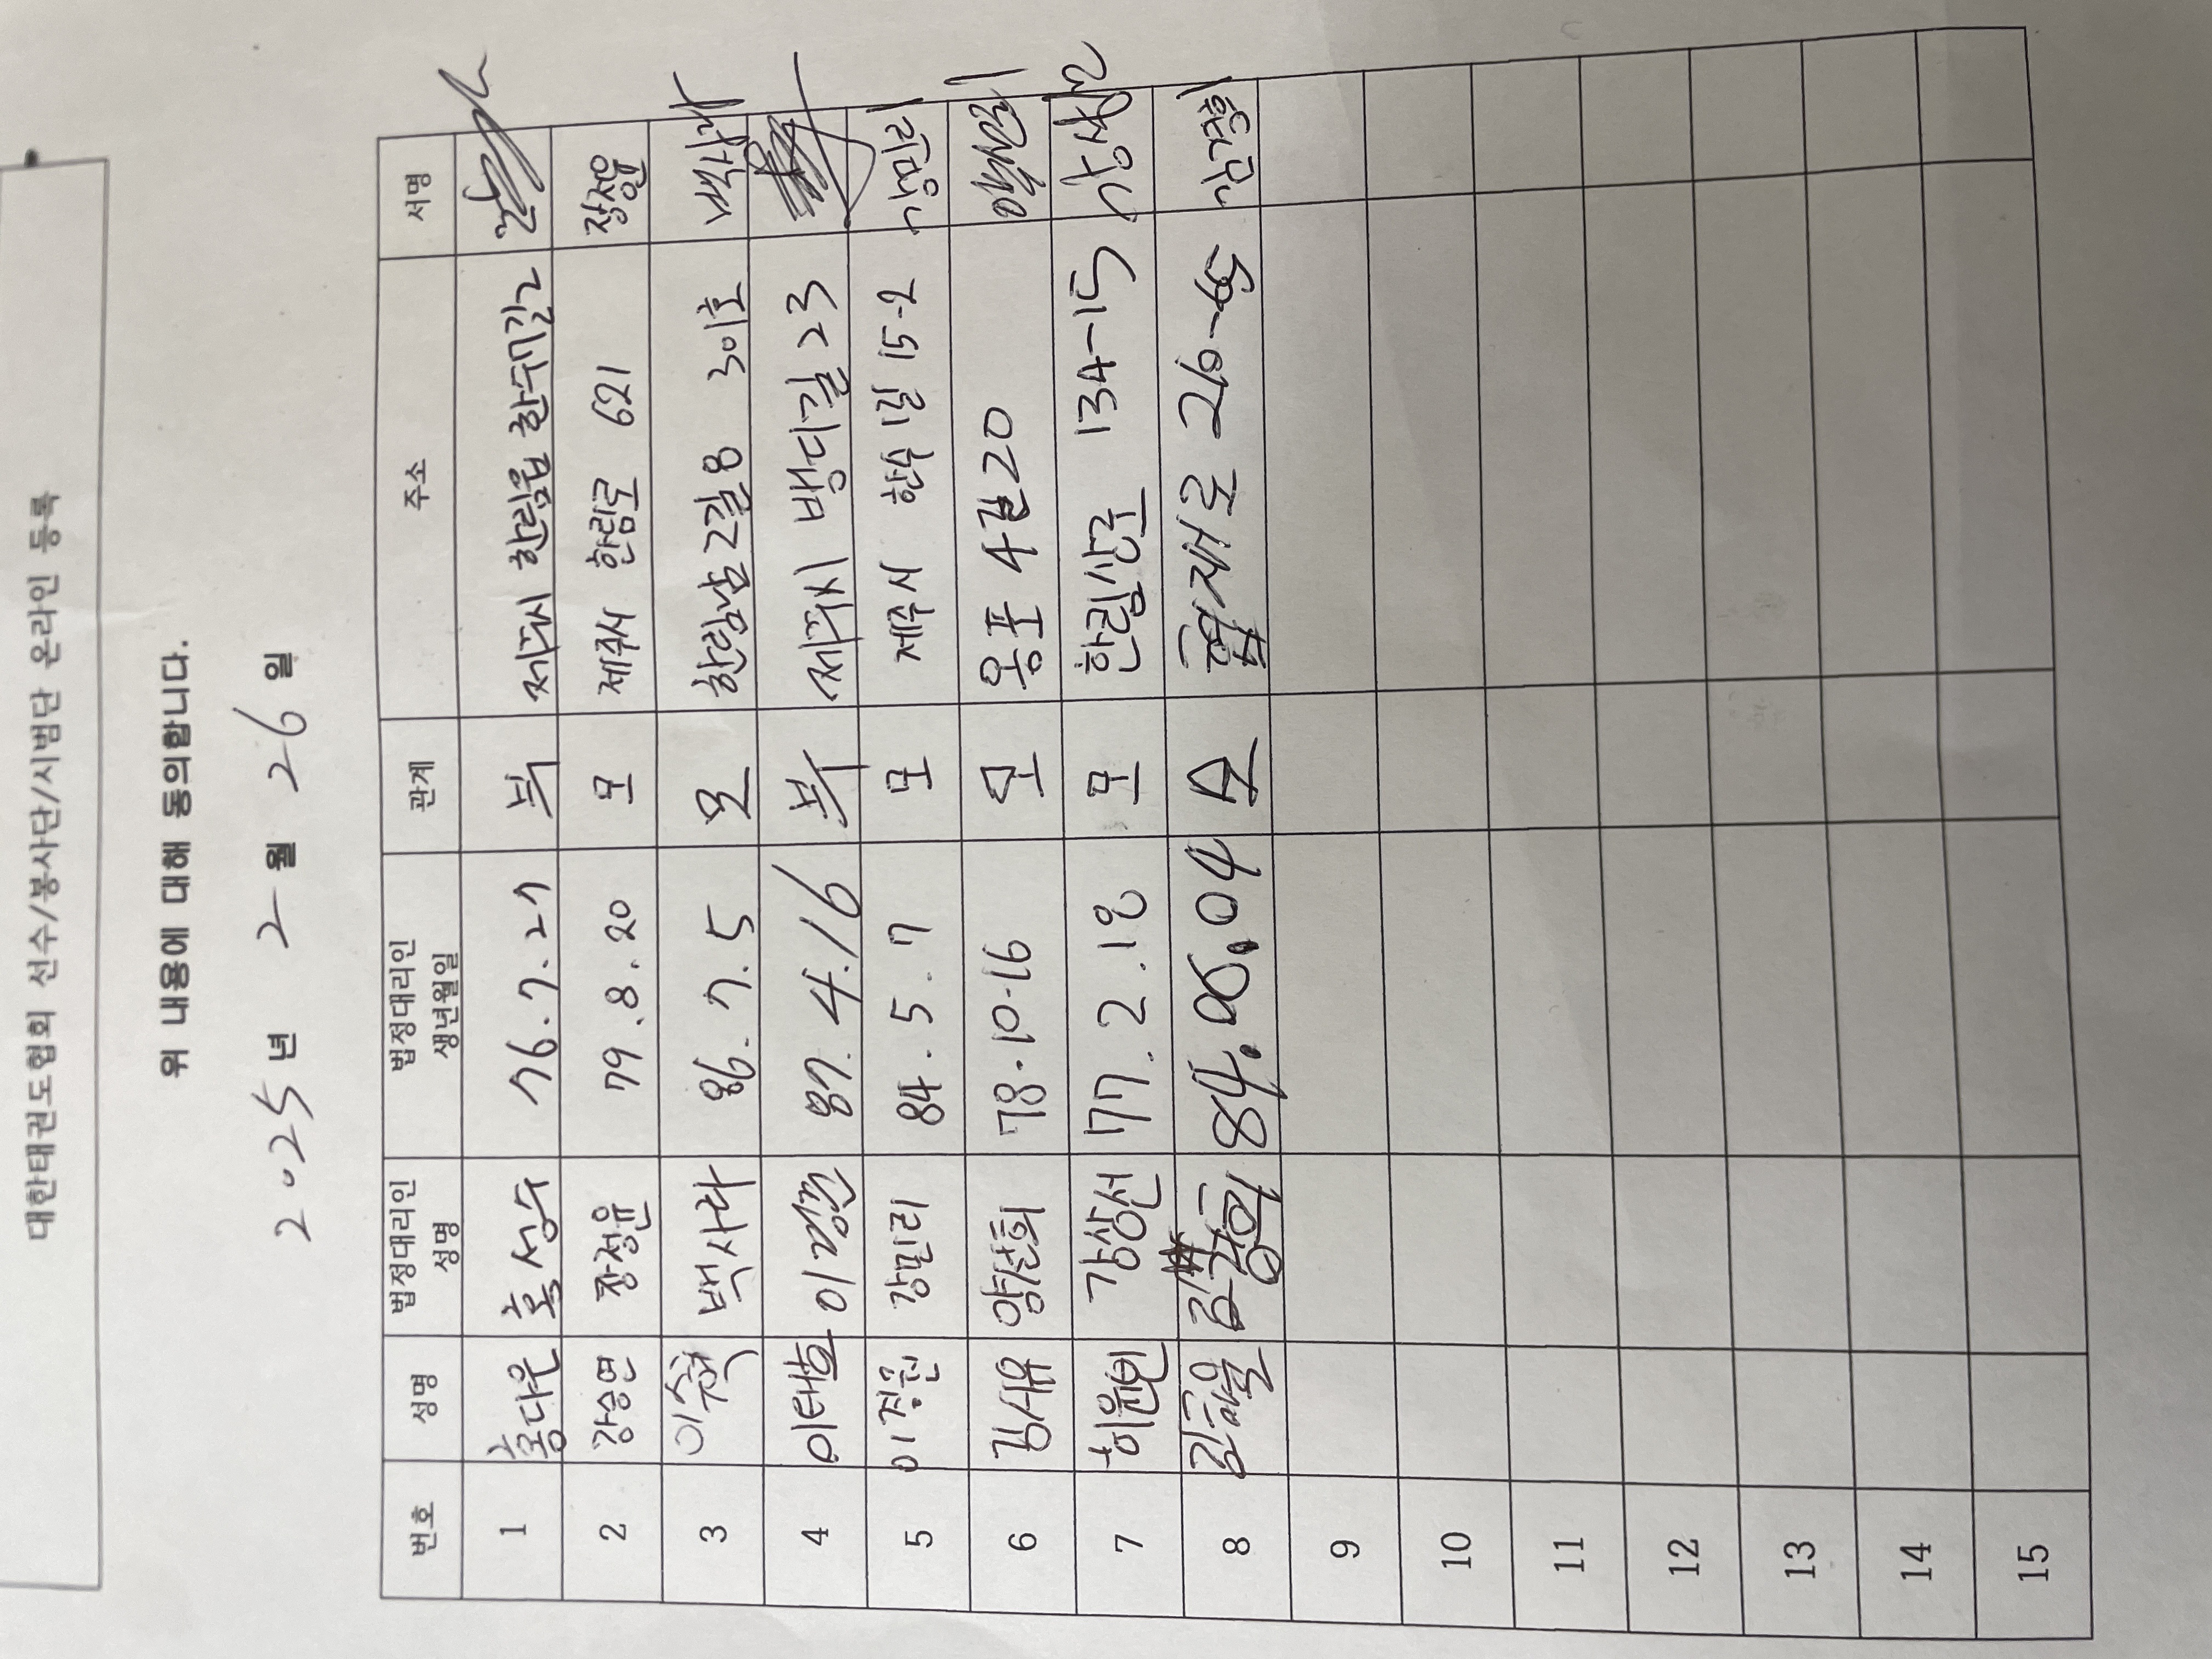 대한태권도협회 선수/봉사단/시범단 온라인 등록
위 내용에 대해 동의합니다.
2025년 2월 26일
번호 성명 법정대리인 성명 법정대리인 생년월일 관계 주소 서명
1 홍다은 홍성수 76.7.27 부 제주시 한림읍 한수1길2
2 강승연 장정윤 79.8.20 모 제주시 한림로 621 장정윤
3 이수혁 백사라 86.7.5 모 한림남2길8 301호 백사라
4 이태호 이경준 87.4.16 부 제주시 뱅디길 23
5 이정훈 강미리 84.5.7 모 제주시 한수1길 15-2 강미리
6 김시유 양선희 78.10.16 모 옹포 4길20
7 허윤빈 강상선 77.2.18 모 한림상로 134-15 강상선
8 84.06.04 모
9
10
11
12
13
14
15